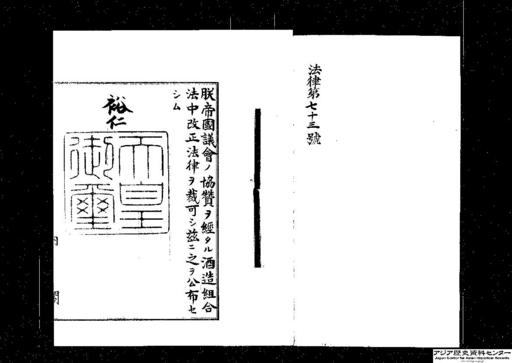 法律第七十三號
朕帝國議會ノ協贊ヲ經タル酒造組合
法中改正法律ヲ裁可シ茲ニ之ヲ公布セ
シム
裕仁
天皇
御璽
アジア歴史資料センター
Japan Center for Asian Historical Records